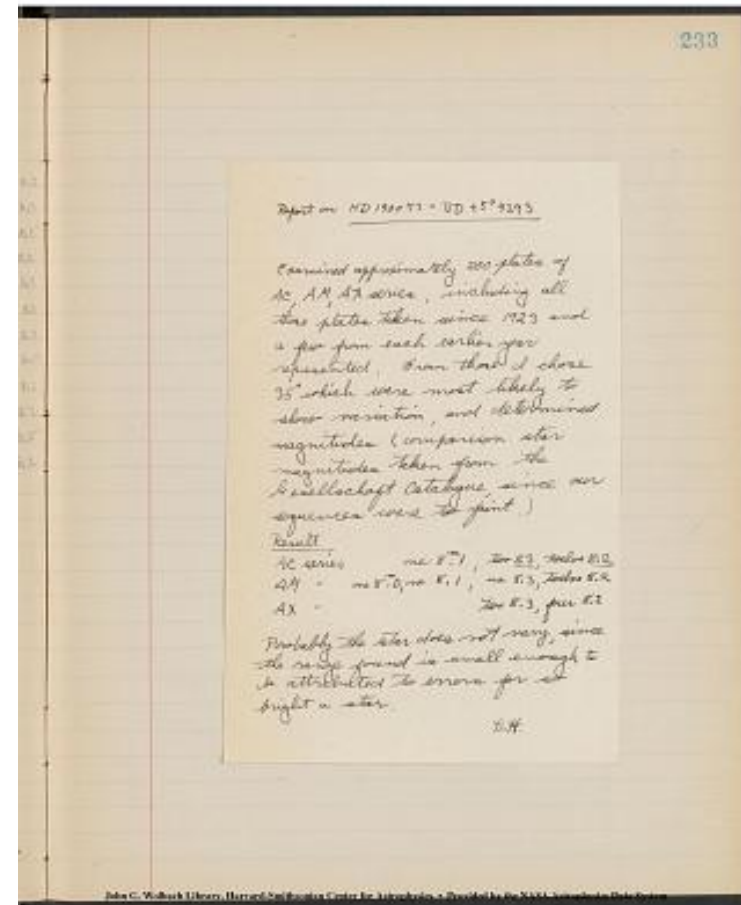 233
Report on HD 190073 = BD +5° 4393
Examined approximately 200 plates of
AC, AM, AX series, including all
those plates taken since 1923 and
a few from each earlier year
represented. From these I chose
35 which were most likely to
show variation, and determined
magnitudes (comparison star
magnitudes taken from the
Gesellschaft Catalogue since our
sequences were to faint.)
Result
AC series one 8.ᵐ1, two 8.3, twelve 8.2
AM " one 8.0, one 8.1, one 8.3, twelve 8.2
AX " two 8.3, four 8.2
Probably the star does not vary, since
the range found is small enough to
be attributed to errors for so
bright a star.
D.H.
John G. Wolbach Library, Harvard-Smithsonian Center for Astrophysics • Provided by the NASA Astrophysics Data System